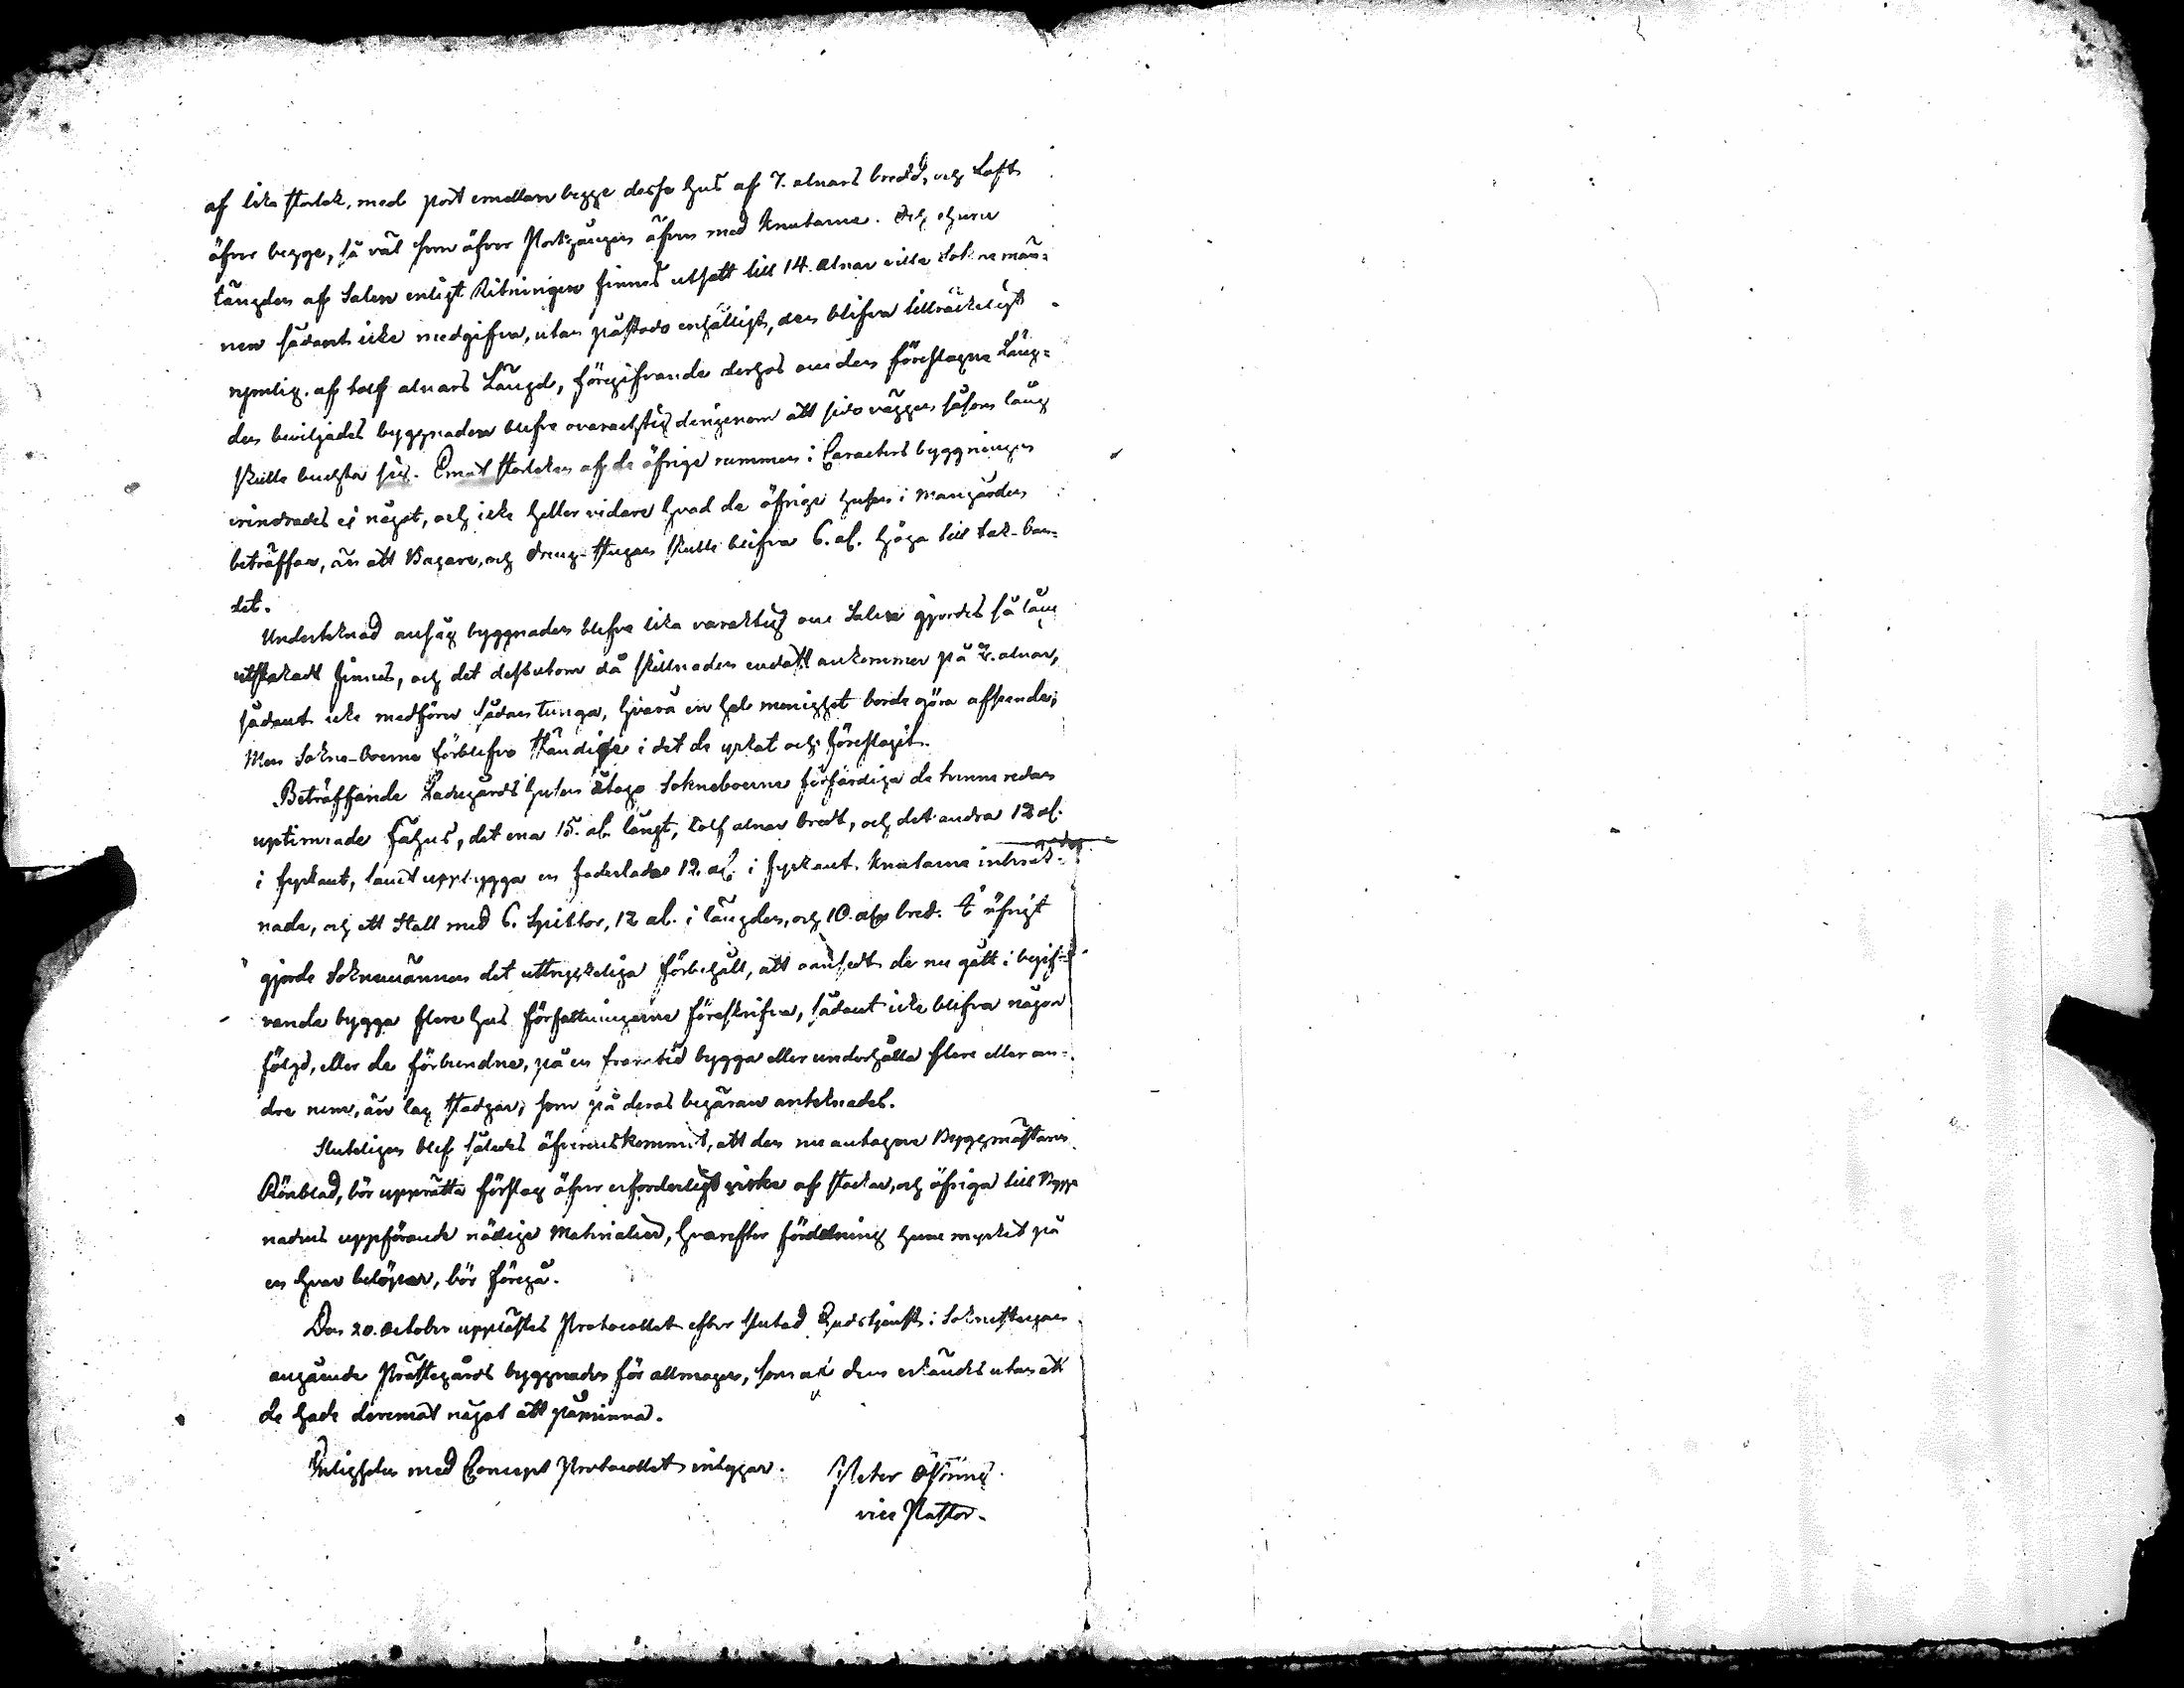 af lika storlek, med port emellan begge desse hus af 7. alnars bredd, och Loft
öfver begge, så väl som öfver Portgången äfven med Knutarne. Och ehuru
längden af Salen enligt Ritningen finnes utsatt till 14. alnar ville Soknemän-
nen sådant icke medgifva, utan påstodo enhälligt, den blifva tillräckeligt
nemlig. af tolf alnars Längd, föregifvande derhos om den föreslagne Läng-
den beviljades byggnaden blefve ovaracktig derigenom att sido väggen såsom lång
skulle bucksta sig. Emot storleken af de öfrige rummen i Caracters byggningen
erindrades ej något, och icke heller vidare hvad de öfrige husen i Mangården
beträffar, än att Bagare, och dreng-stugan skulle blifva 6. al. höga till tak-ban-
det.
Underteknad ansåg byggnaden blefve lika varaktig om Salen gjordes så lång
utstakadt finnes, och det dessutom då skillnaden endast ankommer på 2. alnar,
sådant icke medförer sådan tunga, hvarå en hel menighet borde göra afseende;
Men Sokne-boerne förblefvo ständige i det de yrkat och föreslagit.
Beträffande Ladugårds husen åtogo Sokneboerne förfärdiga de tvenne redan
uptimrade Fähus, det ena 15. al. långt, tolf alnar bredt, och det andra 12 al.
i fyrkant, samt uppbygga en foderlada 12. al. i fyrkant. Knutarne inberäk-
nade, och ett Stall med 6. Spiltor, 12 al. i längden, och 10. al. bred. I öfrigt
gjorde Soknemännen det uttryckeliga förbehåll, att oansedt de nu gått i begif-
vande bygga flere hus författningarne föreskrifva, sådant icke blifva någon
följd, eller de förbundne, på en framtid bygga eller underhålla flere eller an-
dre rum, än lag stadgar; som på deras begäran anteknades.
Sluteligen blef således öfverenskommit, att den nu antagne Byggmästaren
Rönblad, bör upprätta förslag öfver erforderligt virke af stockar, och öfriga till Bygg-
nadens uppförande nödige Materialier, hvarefter fördelning huru mycket på
en hvar belöper, bör föregå.
Den 20. October upplästes Protocollet efter slutad Gudstjenst i Soknestugan
angående Prästegårds byggnaden för allmogen, som af dem erkändes utan att
de hade deremot något att påminna.
Enligheten med Concept Protocollet intygar. Peter
vice Pastor.